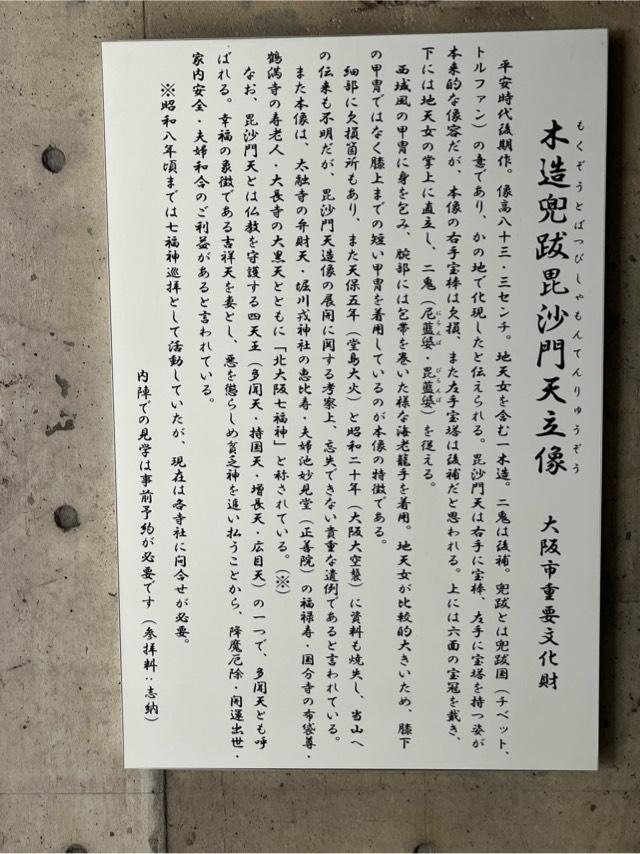 もくぞうとばつびしゃもんてんりゅうぞう
木造兜跋毘沙門天立像　大阪市重要文化財
平安時代後期作。像高八十三・三センチ。地天女を含む一木造。二鬼は後補。兜跋とは兜跋国（チベット、
トルファン）の意であり、かの地で化現したと伝えられる。毘沙門天は右手に宝棒、左手に宝塔を持つ姿が
本来的な像容だが、本像の右手宝棒は欠損、また左手宝塔は後補だと思われる。上には六面の宝冠を戴き、
下には地天女の掌上に直立し、二鬼（尼藍婆・毘藍婆）を従える。
にらんば　びらんば
西域風の甲冑に身を包み、腕部には包帯を巻いた様な海老籠手を着用。地天女が比較的大きいため、膝下
の甲冑ではなく膝上までの短い甲冑を着用しているのが本像の特徴である。
細部に欠損箇所もあり、また天保五年（堂島大火）と昭和二十年（大阪大空襲）に資料も焼失し、当山へ
の伝来も不明だが、毘沙門天造像の展開に関する考察上、忘失できない貴重な遺例であると言われている。
また本像は、太融寺の弁財天・堀川戎神社の恵比寿・夫婦池妙見堂（正善院）の福禄寿・国分寺の布袋尊・
鶴満寺の寿老人・大長寺の大黒天とともに「北大阪七福神」と称されている。（※）
なお、毘沙門天とは仏教を守護する四天王（多聞天・持国天・増長天・広目天）の一つで、多聞天とも呼
ばれる。幸福の象徴である吉祥天を妻とし、悪を懲らしめ貧乏神を追い払うことから、降魔厄除・開運出世・
家内安全・夫婦和合のご利益があると言われている。
※昭和八年頃までは七福神巡拝として活動していたが、現在は各寺社に問合せが必要。
内陣での見学は事前予約が必要です（参拝料：志納）